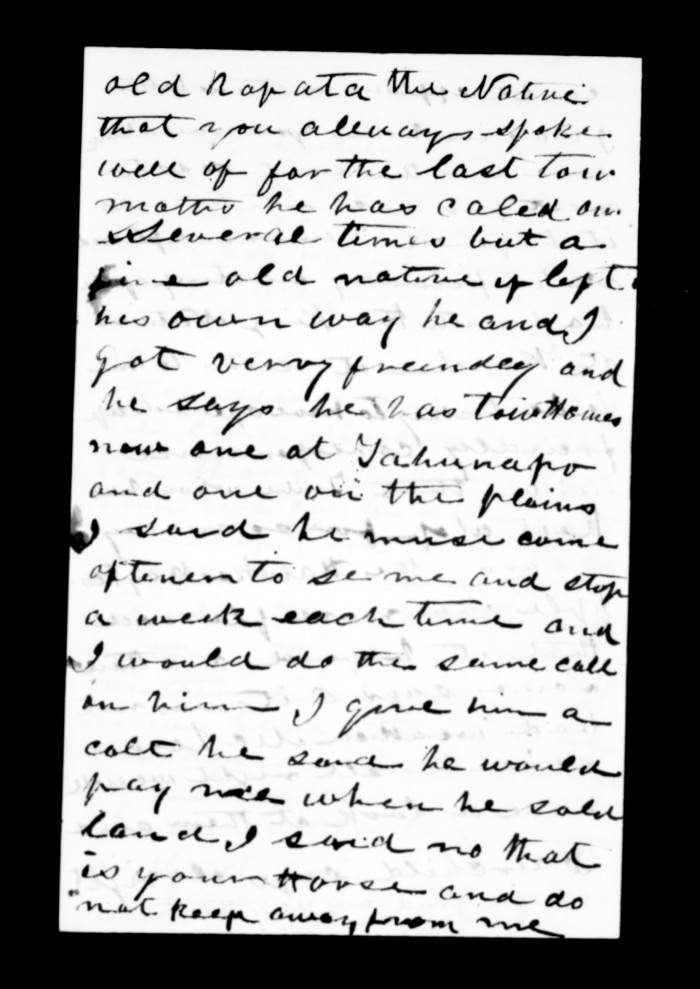 old Ropata the Native
that you allways spoke
well of for the last tow
maths he has caled on
Several times but a
fine old native if left
his own way he and I
got verry freindley and
he says he has tow Homes
now one at Tahunapo
and one on the plains
I said he must come
oftener to se me and stop
a week each time and
I would do the same call
on him I gave him a
colt he said he would
pay me when he sold
land I said no that
is your Horse and do
not keep away from me